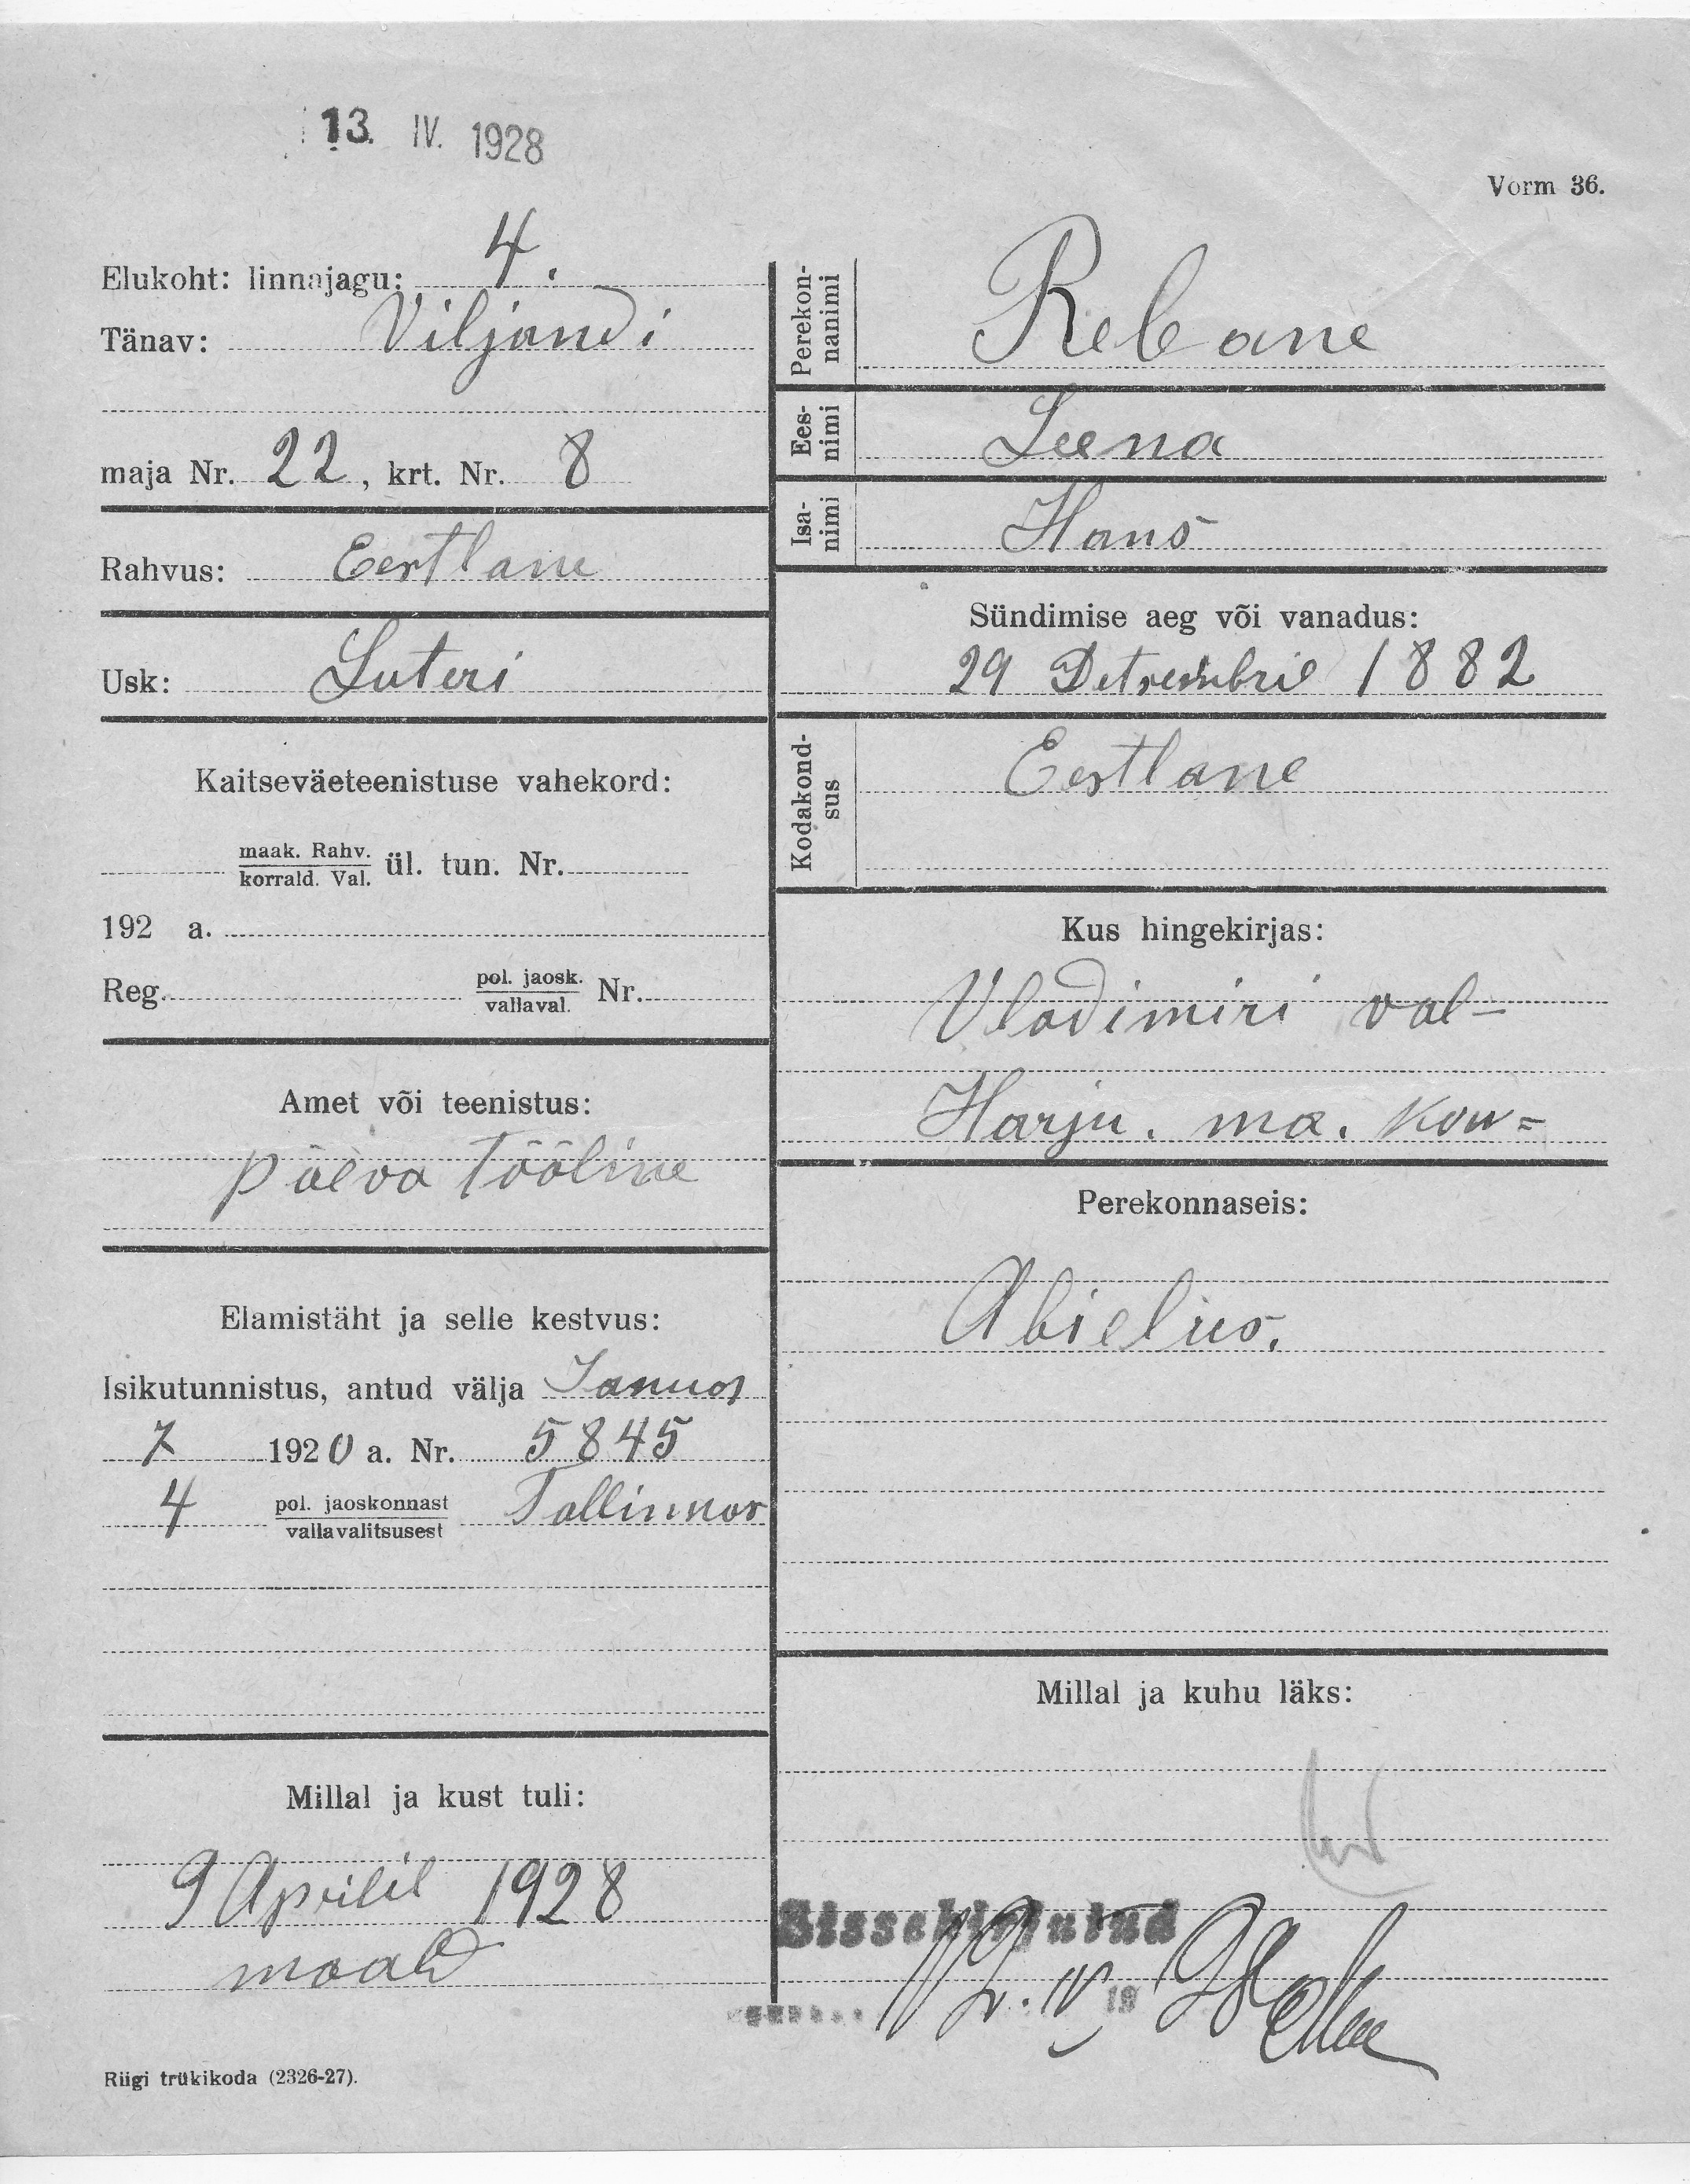 13. IV. 1928
Vorm 36.
Elukoht: linnajagu: 4.
Tänav: Viljandi
maja Nr. 22, krt. Nr. 8
Rahvus: Eestlane
Usk: Luteri
Kaitseväeteenistuse vahekord:
maak. Rahv.
korrald. Val. ül. tun. Nr.
192 a.
Reg. pol. jaosk.
vallaval. Nr.
Amet või teenistus:
päeva Tööline
Elamistäht ja selle kestvus:
Isikutunnistus, antud välja Januar
7 1920 a. Nr. 5845
4 pol. jaoskonnast
vallavalitsusest Tallinnas
Millal ja kust tuli:
9 Aprilil 1928
maalt
Riigi trükikoda (2326-27).
Perekon-
nanimi Rebane
Ees-
nimi Leena
Isa-
nimi Hans
Sündimise aeg või vanadus:
29 Detsembril 1882
Kodakond-
sus Eestlane
Kus hingekirjas:
Vladimiri val-
Harju. ma. kon=
Perekonnaseis:
Abielus.
Millal ja kuhu läks:
Sissekirjutud
IV 19 28